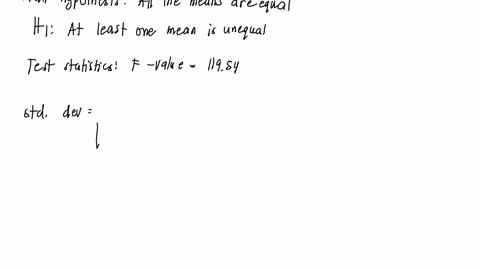 hypothesis: All the means are equal
H1: At least one mean is unequal
Test statistics: F-value = 119.54
std. dev =